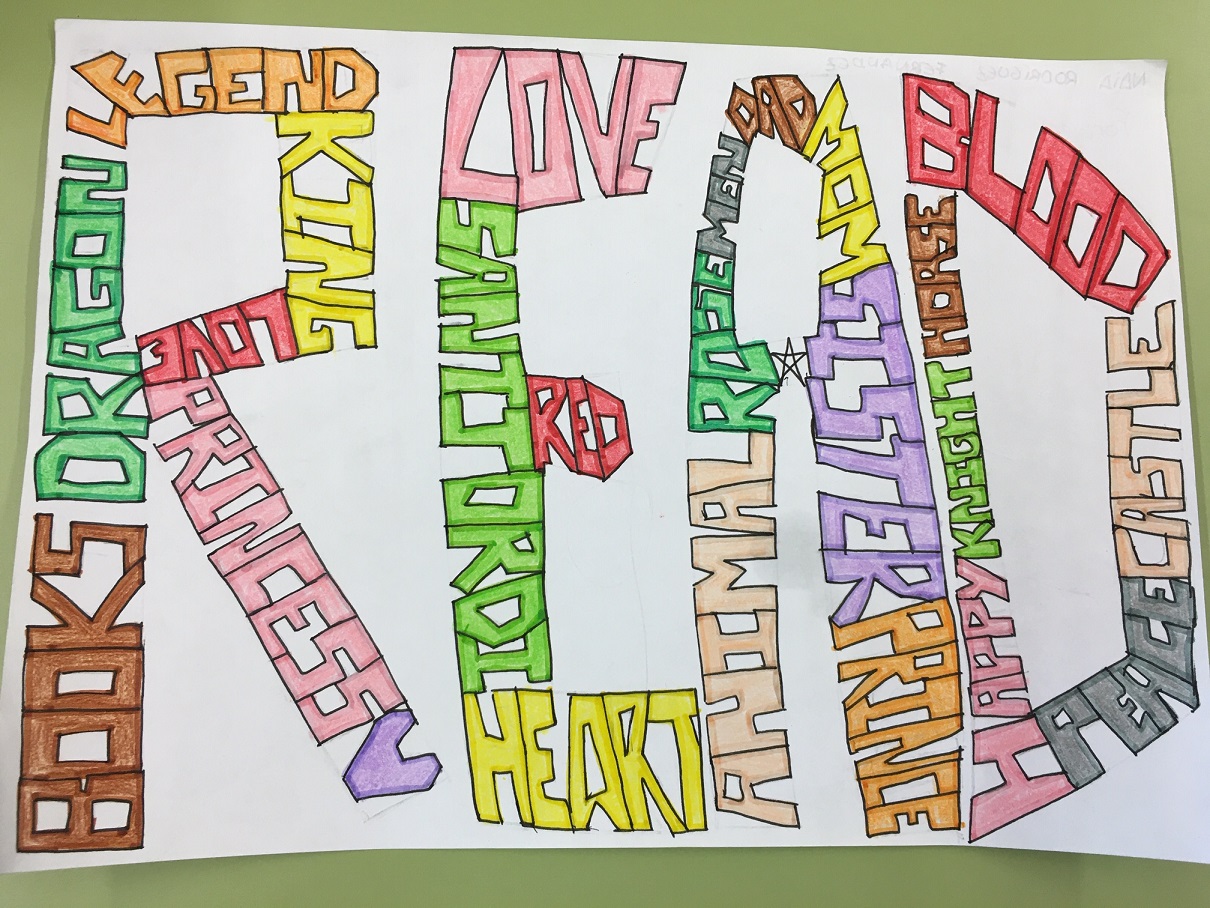 LEGEND
DRAGON
BOOKS
KING
LOVE
PRINCESS
LOVE
SANT JORDI
RED
HEART
DAD
MEN
ROSE
ANIMAL
MOM
SISTER
PRINCE
BLOOD
HORSE
KNIGHT
HAPPY
CASTLE
PEACE